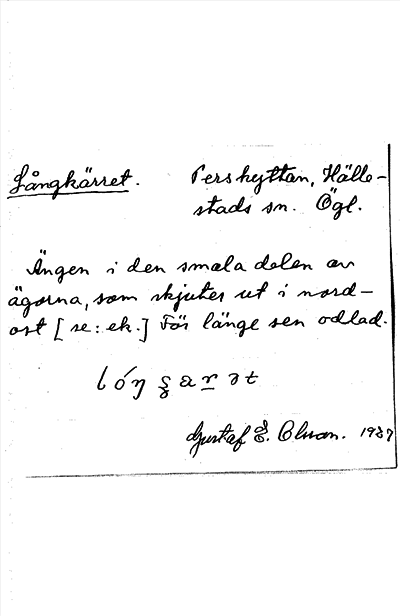 Långkärret. Pershyttan, Hälle-
stads sn. Ögl.
Ängen i den smala delen av
ägorna, som skjuter ut i nord-
ost [se: ek.] För länge sen odlad.
Gustaf E. Olson. 1937